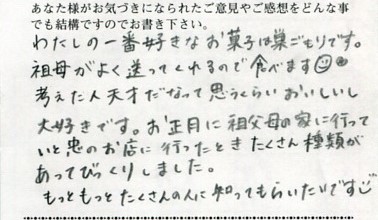 あなた様がお気づきになられたご意見やご感想をどんな事
でも結構ですのでお書き下さい。
わたしの一番好きなお菓子は巣ごもりです。
祖母がよく送ってくれるので食べます
考えた人天才だなって思うくらいおいしいし
大好きです。お正月に祖父母の家に行って
いと忠のお店に行ったときたくさん種類が
あってびっくりしました。
もっともっとたくさんの人に知ってもらいたいです